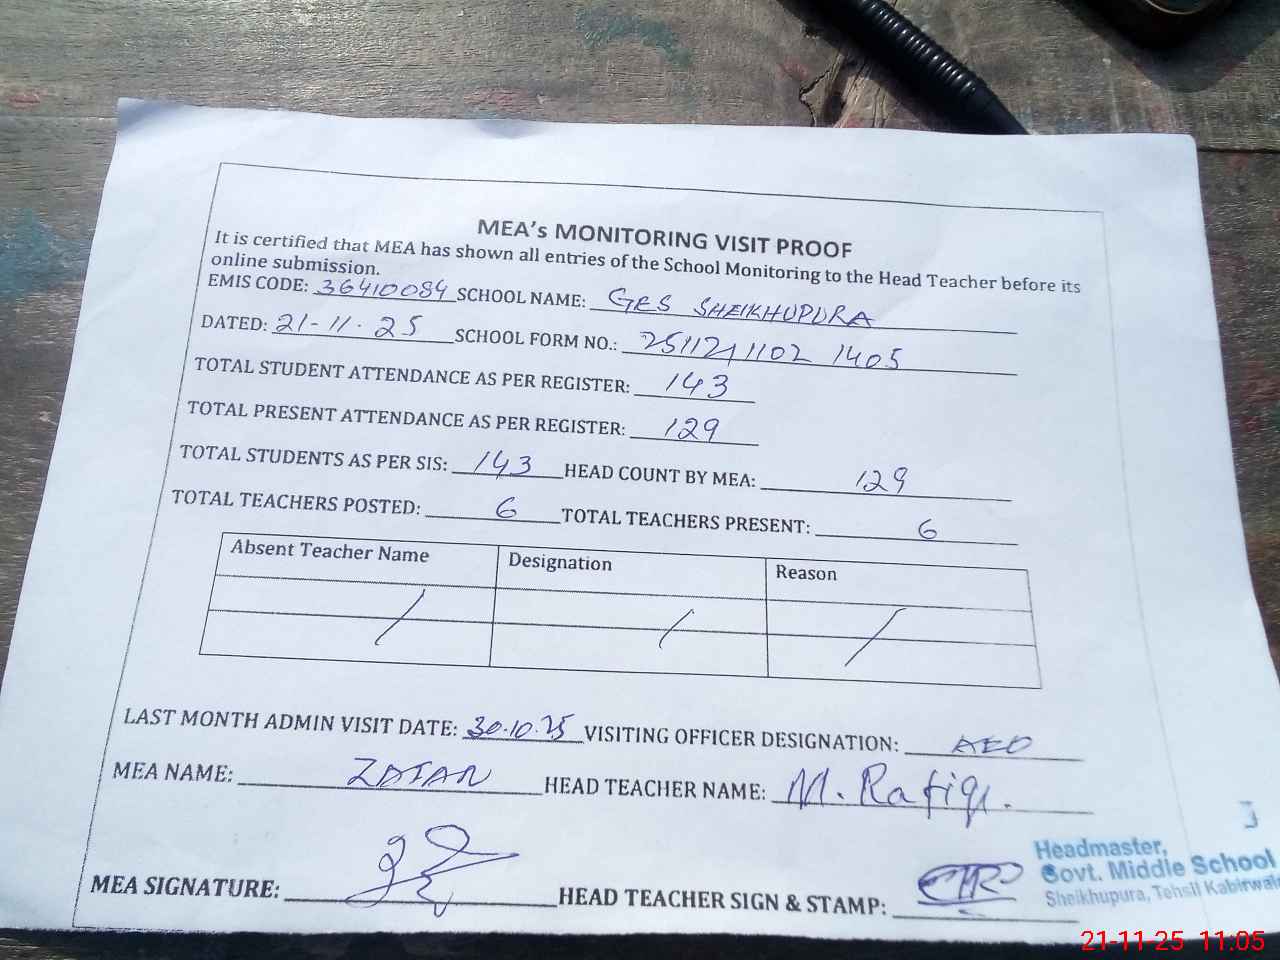 MEA's MONITORING VISIT PROOF
It is certified that MEA has shown all entries of the School Monitoring to the Head Teacher before its
online submission.
EMIS CODE: 36410084 SCHOOL NAME: GES SHEIKHUPURA
DATED: 21-11-25 SCHOOL FORM NO.: 2511211102 1405
TOTAL STUDENT ATTENDANCE AS PER REGISTER: 143
TOTAL PRESENT ATTENDANCE AS PER REGISTER: 129
TOTAL STUDENTS AS PER SIS: 143 HEAD COUNT BY MEA: 129
TOTAL TEACHERS POSTED: 6 TOTAL TEACHERS PRESENT: 6
Absent Teacher Name Designation Reason
LAST MONTH ADMIN VISIT DATE: 30.10.25 VISITING OFFICER DESIGNATION: AEO
MEA NAME: HEAD TEACHER NAME: M. Rafiq.
MEA SIGNATURE: HEAD TEACHER SIGN & STAMP:
Headmaster,
Govt. Middle School
Sheikhupura, Tehsil Kabirwala
21-11-25 11:05